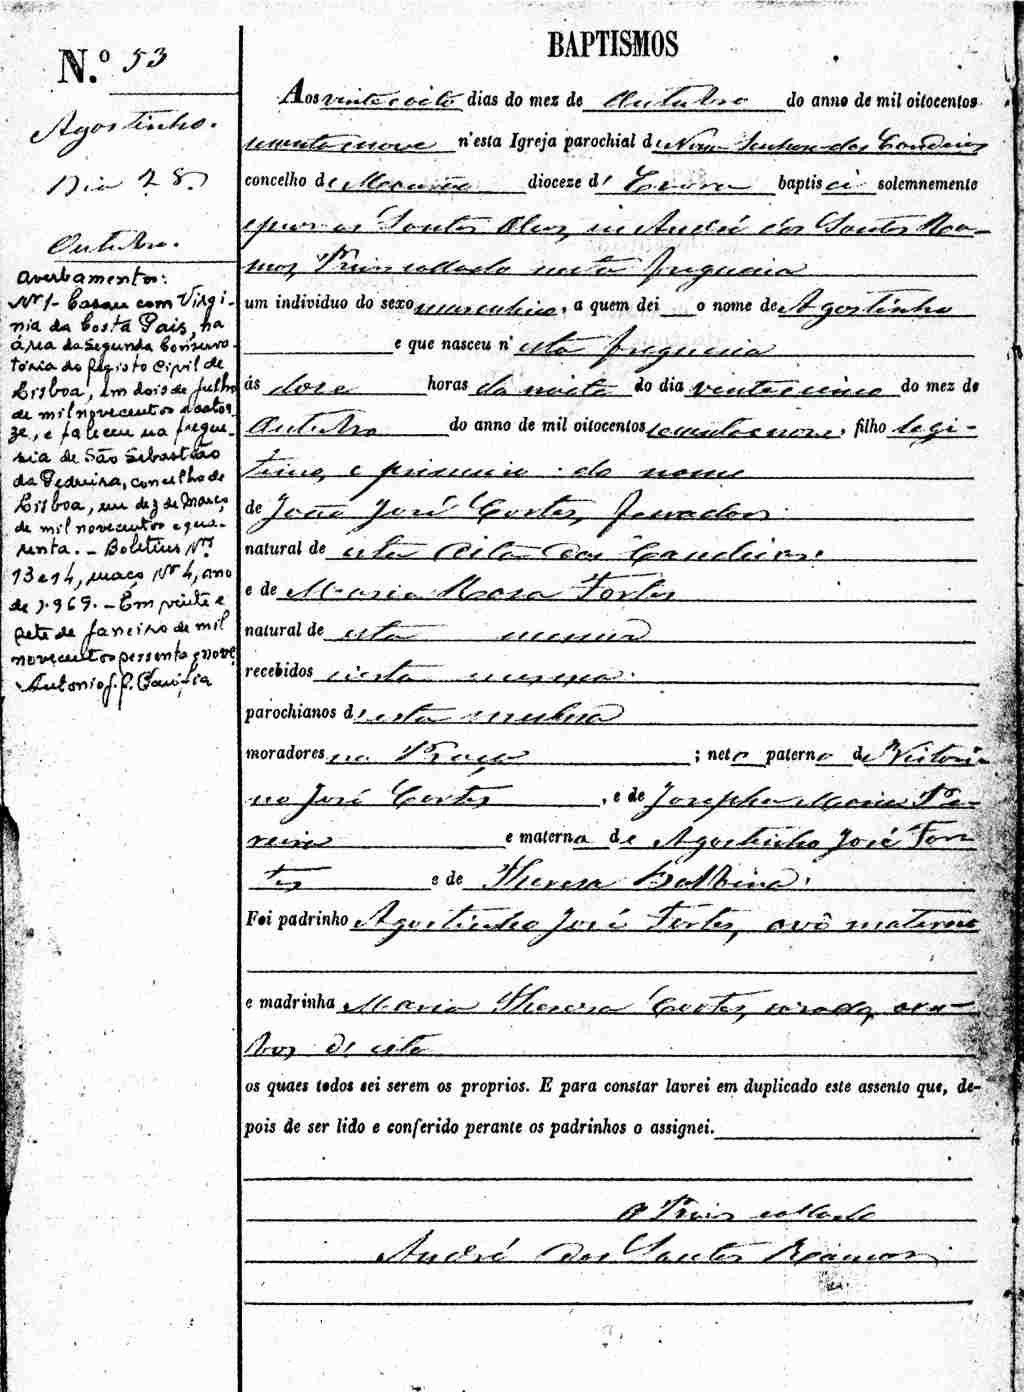 BAPTISMOS
N.º 53
Agostinho.
Dia 28.
Outubro.
Averbamentos:
Nº 1 - Casou com Virgi-
nia da Costa Pais, na
área da Segunda Conserva-
tória do Registo Civil de
Lisboa, em dois de Julho
de mil novecentos e cator-
ze, e faleceu na fregue-
sia de São Sebastião
da Pedreira, concelho de
Lisboa, em dez de Março
de mil novecentos e qua-
renta. - Boletins Nºs
13 e 14, maço Nº 4, ano
de 1.969. - Em vinte e
sete de Janeiro de mil
novecentos sessenta e nove
Antonio J. F.
Aos vinte e oito dias do mez de Outubro do anno de mil oitocentos
sessenta e nove n'esta Igreja parochial de Nossa Senhora das Candeias
concelho de Mourão dioceze d' Evora baptisei solemnemente
e puz os Santos Oleos, eu André dos Santos Ra-
mos, Prior collado nesta freguezia
um individuo do sexo masculino, a quem dei o nome de Agostinho
e que nasceu n'esta freguezia
ás doze horas da noite do dia vinte e cinco do mez de
Outubro do anno de mil oitocentos sessenta e nove, filho legi-
timo, e primeiro do nome
de João José Cortes, Lavrador
natural de esta Vila das Candeias
e de Maria Rosa Fortes
natural de esta mesma
recebidos nesta mesma
parochianos d'esta mesma
moradores na Praça ; neto paterno de Victori-
no José Cortes, e de Josepha Maria Pe-
reira e materno de Agostinho José For-
tes e de Theresa Balbina.
Foi padrinho Agostinho José Fortes, avô materno
e madrinha Maria Theresa Cortes, casada, am-
bos d'esta
os quaes todos sei serem os proprios. E para constar lavrei em duplicado este assento que, de-
pois de ser lido e conferido perante os padrinhos o assignei.
O Prior collado
André dos Santos Ramos